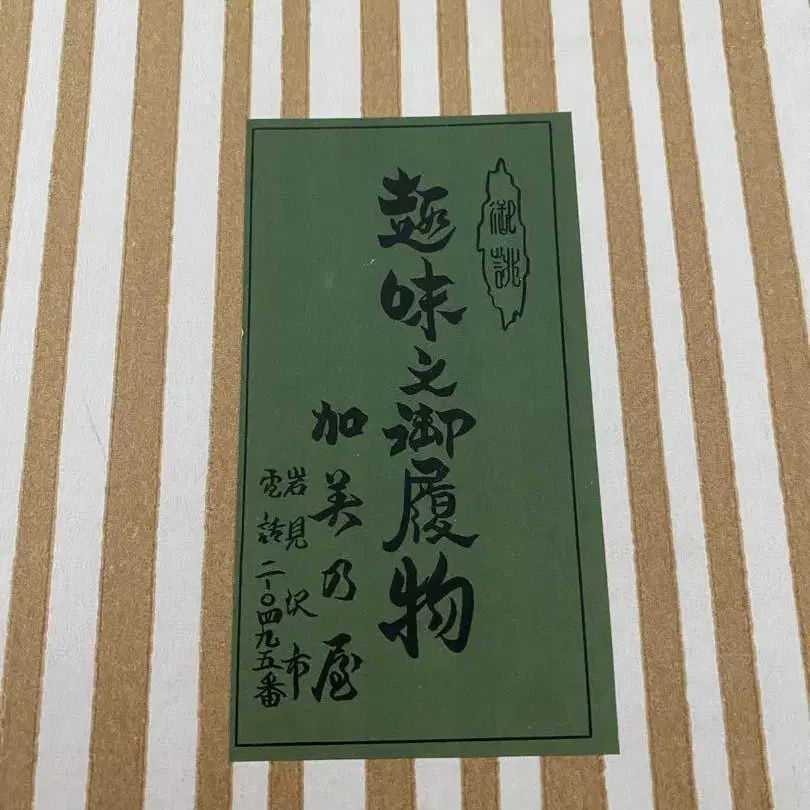 御誂
趣味之御履物
加美乃屋
岩見沢市
電話二-〇四九五番